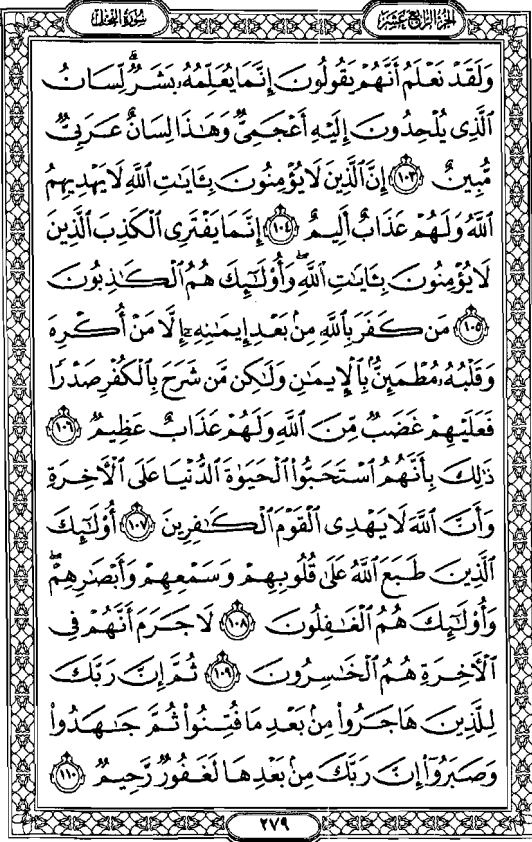 الجزء الرابع عشر
سورة النحل
وَلَقَدْ نَعْلَمُ أَنَّهُمْ يَقُولُونَ إِنَّمَا يُعَلِّمُهُۥ بَشَرٌ ۗ لِّسَانُ
ٱلَّذِى يُلْحِدُونَ إِلَيْهِ أَعْجَمِىٌّ وَهَـٰذَا لِسَانٌ عَرَبِىٌّ
مُّبِينٌ ١٠٣ إِنَّ ٱلَّذِينَ لَا يُؤْمِنُونَ بِـَٔايَـٰتِ ٱللَّهِ لَا يَهْدِيهِمُ
ٱللَّهُ وَلَهُمْ عَذَابٌ أَلِيمٌ ١٠٤ إِنَّمَا يَفْتَرِى ٱلْكَذِبَ ٱلَّذِينَ
لَا يُؤْمِنُونَ بِـَٔايَـٰتِ ٱللَّهِ ۖ وَأُو۟لَـٰٓئِكَ هُمُ ٱلْكَـٰذِبُونَ
١٠٥ مَن كَفَرَ بِٱللَّهِ مِنۢ بَعْدِ إِيمَـٰنِهِۦٓ إِلَّا مَنْ أُكْرِهَ
وَقَلْبُهُۥ مُطْمَئِنٌّۢ بِٱلْإِيمَـٰنِ وَلَـٰكِن مَّن شَرَحَ بِٱلْكُفْرِ صَدْرًا
فَعَلَيْهِمْ غَضَبٌ مِّنَ ٱللَّهِ وَلَهُمْ عَذَابٌ عَظِيمٌ ١٠٦
ذَٰلِكَ بِأَنَّهُمُ ٱسْتَحَبُّوا۟ ٱلْحَيَوٰةَ ٱلدُّنْيَا عَلَى ٱلْـَٔاخِرَةِ
وَأَنَّ ٱللَّهَ لَا يَهْدِى ٱلْقَوْمَ ٱلْكَـٰفِرِينَ ١٠٧ أُو۟لَـٰٓئِكَ
ٱلَّذِينَ طَبَعَ ٱللَّهُ عَلَىٰ قُلُوبِهِمْ وَسَمْعِهِمْ وَأَبْصَـٰرِهِمْ ۖ
وَأُو۟لَـٰٓئِكَ هُمُ ٱلْغَـٰفِلُونَ ١٠٨ لَا جَرَمَ أَنَّهُمْ فِى
ٱلْـَٔاخِرَةِ هُمُ ٱلْخَـٰسِرُونَ ١٠٩ ثُمَّ إِنَّ رَبَّكَ
لِلَّذِينَ هَاجَرُوا۟ مِنۢ بَعْدِ مَا فُتِنُوا۟ ثُمَّ جَـٰهَدُوا۟
وَصَبَرُوٓا۟ إِنَّ رَبَّكَ مِنۢ بَعْدِهَا لَغَفُورٌ رَّحِيمٌ ١١٠
٢٧٩